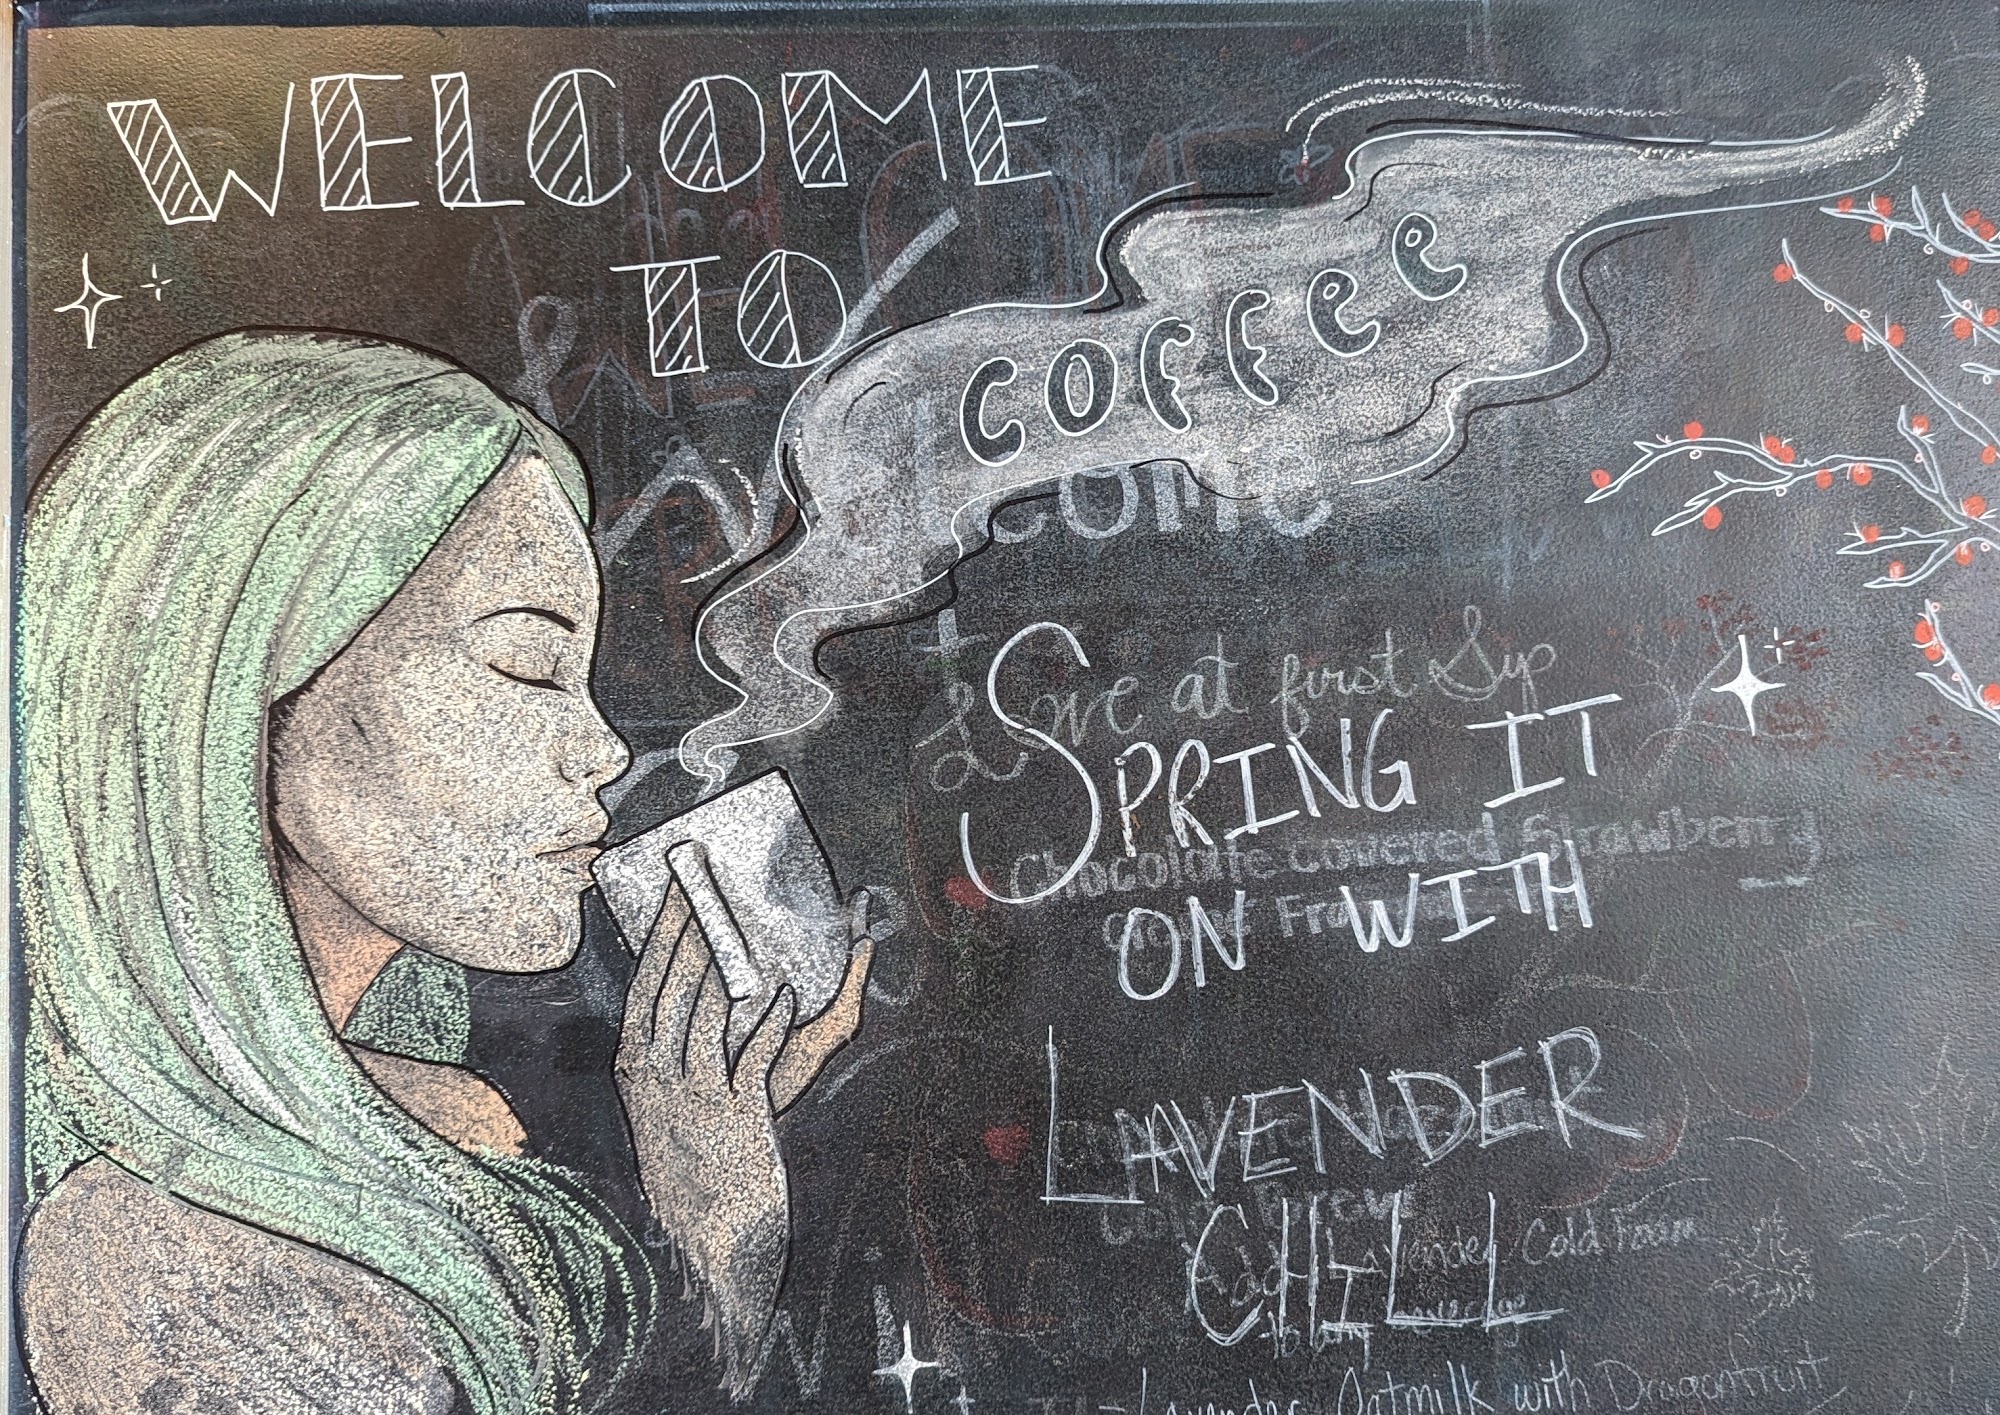 WELCOME
TO
COFFEE
Welcome
Love at first Sip
SPRING IT
Chocolate covered Strawberry
ON WITH
LAVENDER
CHILL
Add Lavender Cold Foam
to any beverage
Lavender Oatmilk with Dragonfruit